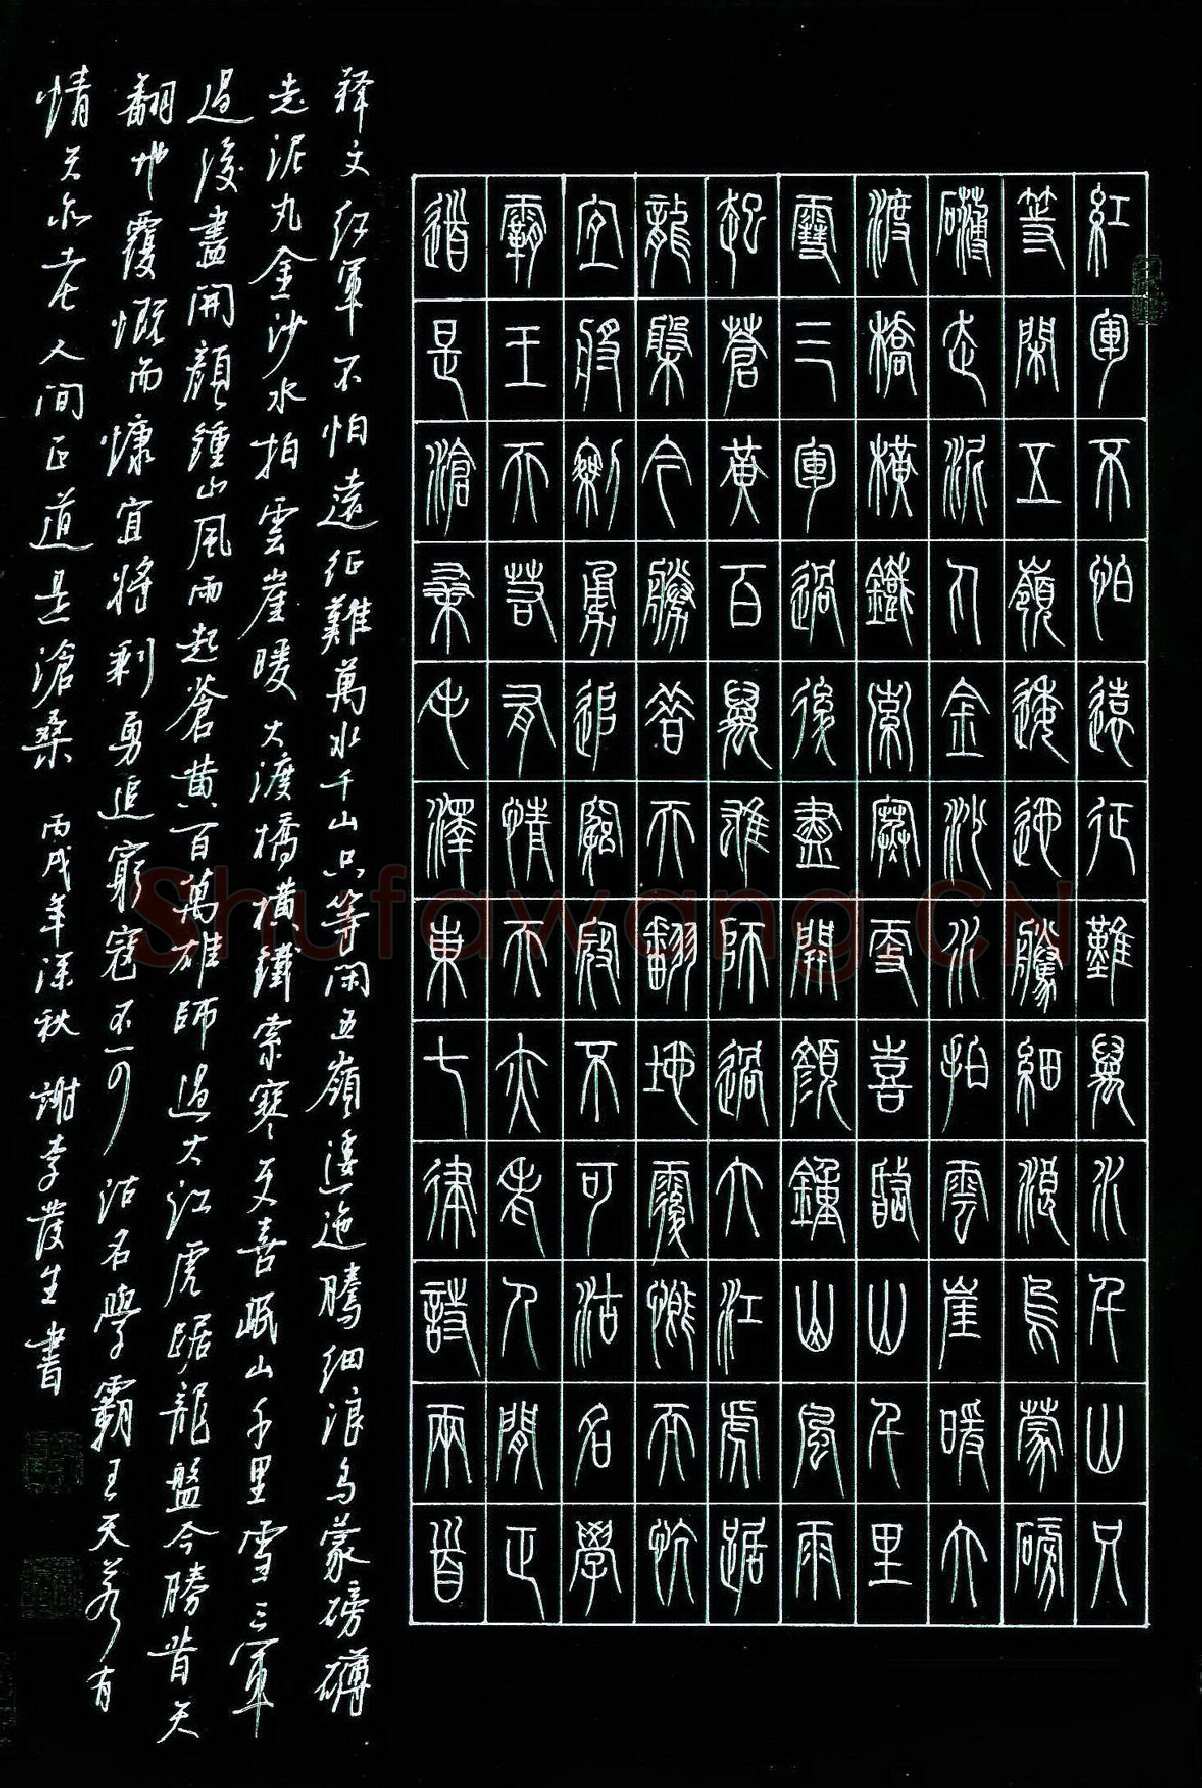 紅軍不怕遠征難萬水千山只
等閑五嶺逶迤騰細浪烏蒙磅
礴走泥丸金沙水拍雲崖暖大
渡橋橫鐵索寒更喜岷山千里
雪三軍過後盡開顏鐘山風雨
起蒼黃百萬雄師過大江虎踞
龍盤今勝昔天翻地覆慨而慷
宜將剩勇追窮寇不可沽名學
霸王天若有情天亦老人間正
道是滄桑毛澤東七律詩兩首
释文红軍不怕遠征難萬水千山只等閑五嶺逶迤騰細浪烏蒙磅礴
走泥丸金沙水拍雲崖暖大渡橋橫鐵索寒更喜岷山千里雪三軍
過後盡開顏鍾山風雨起蒼黄百萬雄師過大江虎踞龍盤今勝昔天
翻地覆慨而慷宜將剩勇追窮寇不可沽名學霸王天若有
情天亦老人间正道是滄桑 丙戌年深秋 謝 生書
Shufawang.CN